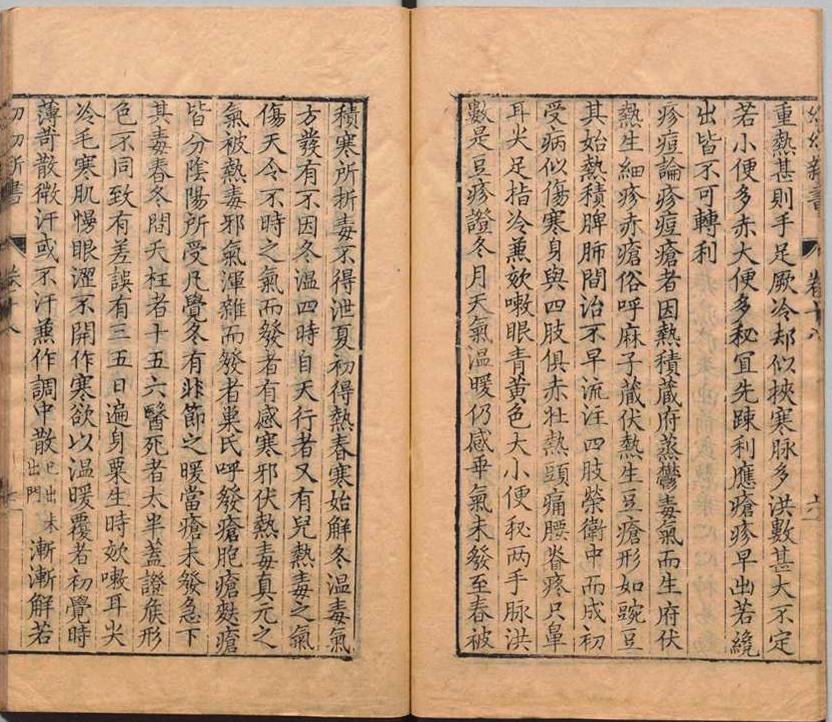 幼幼新書 卷十八 六
重熱甚則手足厥冷却似挾寒脉多洪數甚大不定
若小便多赤大便多秘宜先踈利應瘡疹早出若纔
出皆不可轉利
疹痘論疹痘瘡者因熱積藏府蒸鬱毒氣而生府伏
熱生細疹赤瘡俗呼麻子藏伏熱生豆瘡形如豌豆
其始熱積脾肺間治不早流注四肢榮衛中而成初
受病似傷寒身與四肢俱赤壯熱頭痛腰脊疼只鼻
耳尖足指冷兼欬嗽眼青黃色大小便秘两手脉洪
數是豆疹證冬月天氣温暖仍感乖氣未發至春被
積寒所折毒不得泄夏初得熱春寒始解冬温毒氣
方發有不因冬温四時自天行者又有兒熱毒之氣
傷天令不時之氣而發者有感寒邪伏熱毒真元之
氣被熱毒邪氣渾雜而發者巢氏呼發瘡胞瘡麩瘡
皆分陰陽所受凡覺冬有非節之暖當瘡未發急下
其毒春冬間夭枉者十五六醫死者太半蓋證候形
色不同致有差誤有三五日遍身粟生時欬嗽耳尖
冷毛寒肌慯眼澀不開作寒欲以温暖覆者初覺時
薄荷散微汗或不汗兼作調中散已出未出門漸漸解若
幼幼新書 卷十八 七